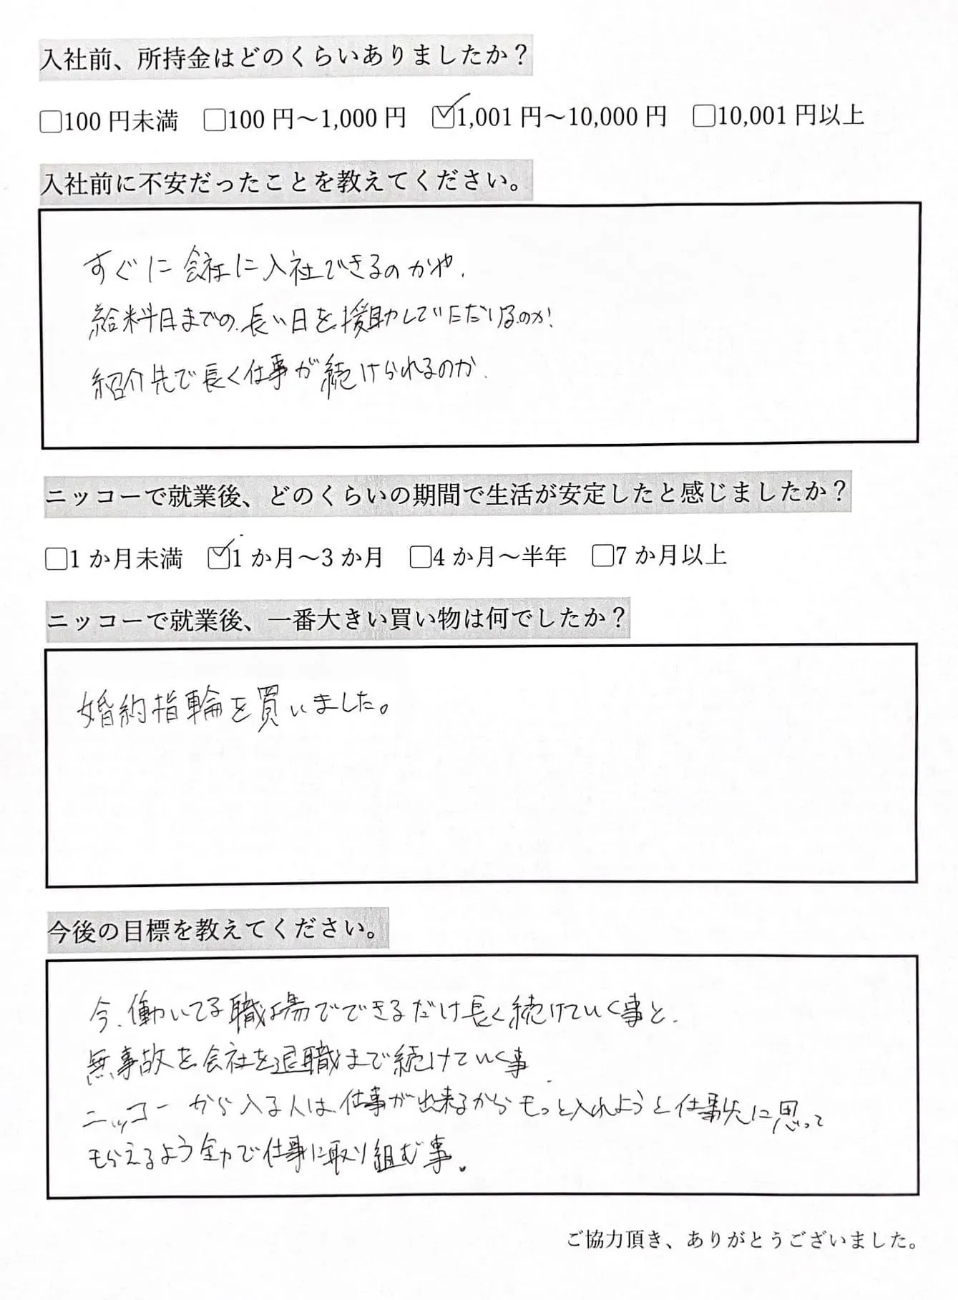 入社前、所持金はどのくらいありましたか？
☐100 円未満 ☐100 円～1,000 円 ☑1,001 円～10,000 円 ☐10,001 円以上
入社前に不安だったことを教えてください。
すぐに会社に入社できるのかや、
給料日までの、長い日を援助していただけるのか！
紹介先で長く仕事が続けられるのか、
ニッコーで就業後、どのくらいの期間で生活が安定したと感じましたか？
☐1 か月未満 ☑1 か月～3 か月 ☐4 か月～半年 ☐7 か月以上
ニッコーで就業後、一番大きい買い物は何でしたか？
婚約指輪を買いました。
今後の目標を教えてください。
今、働いてる職場でできるだけ長く続けていく事と、
無事故を会社を退職まで続けていく事、
ニッコーから入る人は、仕事が出来るからもっと入れようと仕事先に思って
もらえるよう全力で仕事に取り組む事。
ご協力頂き、ありがとうございました。